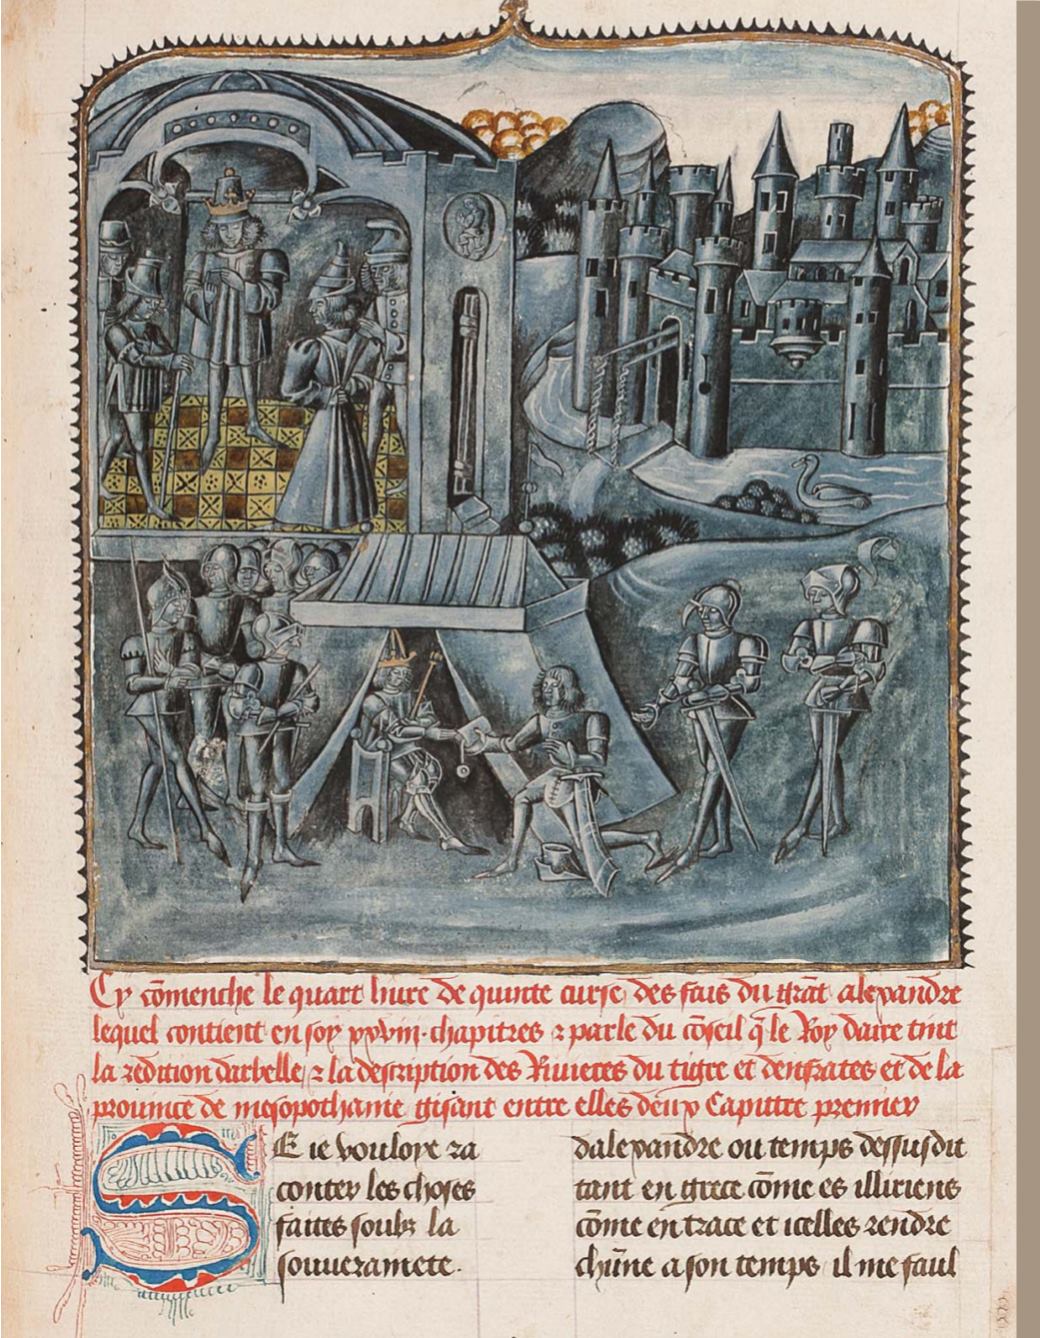 Cy cōmenche le quart liure de quinte curse des fais du grāt alexandre
lequel contient en soy xxviii. chapitres & parle du cōseil q̄ le Roy daire tint
la redition darbelle / & la description des Riuieres du tigre et deufrates et de la
prouince de mesopothamie gisant entre elles deux Capittre premier
SE ie vouloye ra
conter les choses
faites soubz la
souueramete.
dalexandre ou temps dessusdit
tant en grece cōme es illiriens
cōme en trace et icelles rendre
chūne a son temps / il me faul